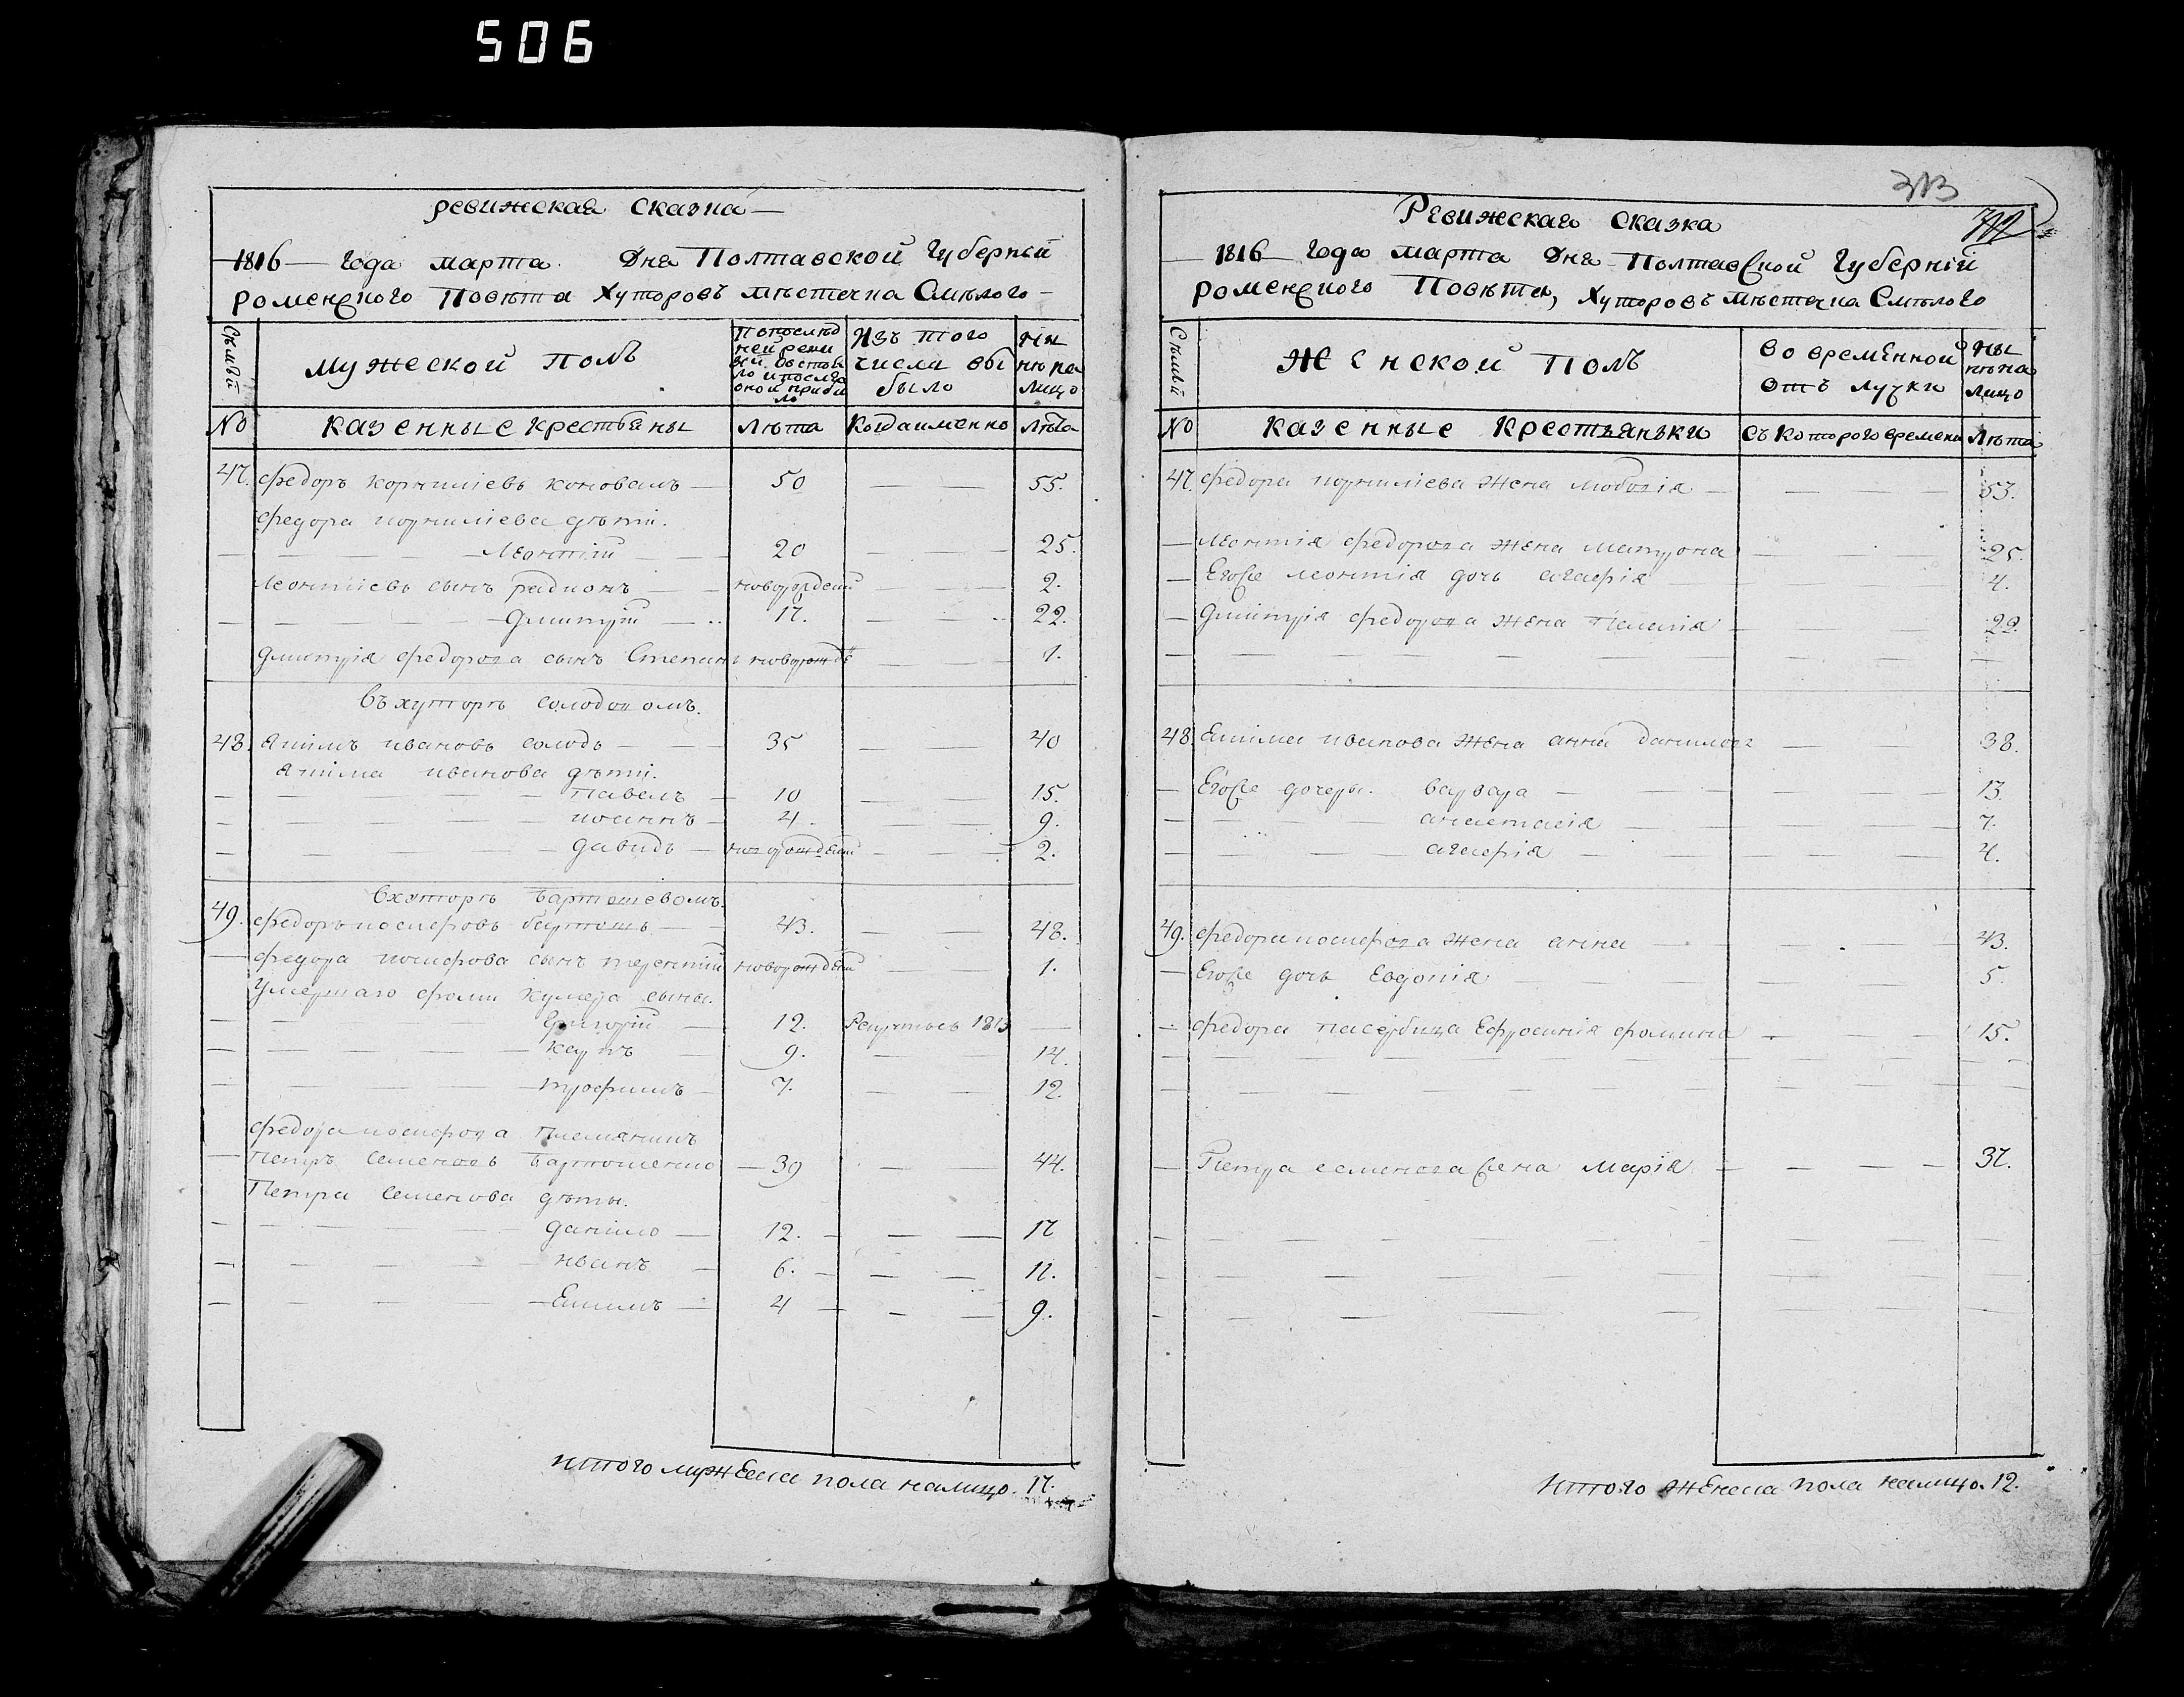 506
ревижская сказка
1816 года марта дня Полтавской Губерний
роменского Повѣта Хуторовъ мѣстечка Смѣлого
Сѣмьй
мужеской полъ
Изъ того числа выбыло
ны нѣ на лицо
№ казенные крестьяны лѣта Когда именно лѣта
47. федоръ корнилiевъ коновалъ 50 55.
федора корнилiева дѣти.
Леонтiй 20 25.
леонтiевъ сынъ радионъ новорожденый 2.
дмитрiй 17. 22.
дмитрiя федорова сынъ Степанъ новорожде 1.
въ хуторѣ солодовомъ.
48. якимъ ивановъ солодъ 35 40
якима иванова дѣти.
павелъ 10 15.
иоаннъ 4. 9.
давидъ новорожденый 2.
вхуторѣ бартошевомъ.
49. федоръ иосифовъ бартошъ 43. 48.
федора иосифова сынъ терентiй новорожденый 1.
Умершаго фомы сыны.
Григорiй 12. Рекрутъ въ 1813
карпъ 9. 14.
трофимъ 7. 12.
федора иосифова племянникъ
Петръ Семеновъ бартошенко 39 44.
Петра Семенова дѣты.
данiило 12. 17
иванъ 6. 11.
Екимъ 4 9.
итого мужеска пола налицо. 17.
313
Ревижская сказка
1816 года марта дня Полтавской Губернiй
роменского Повѣта, Хуторовъ мѣстечка Смѣлого
Сѣмьй
Женской полъ
во временной отълучки
ны нѣ на лицо
№ казенные крестьянъки съ которого времени лѣта
47. федора корнилiева жена 53.
леонтiя федорова жена матрона 25.
Егоже леонтiя дочь агафiя 4.
дмитрiя федорова жена Пелагiя 22.
48. Екима иванова жена анна данилова 38.
Егоже дочеры. варвара 13.
анастасiя 7.
агафiя 4.
49. федора иосифова жена анна 43.
Егоже дочь Евдокiя 5.
федора пасербица Ефросинiя фомина 15.
Петра семенова жена Марiя 37.
Итого женска пола налицо. 12.